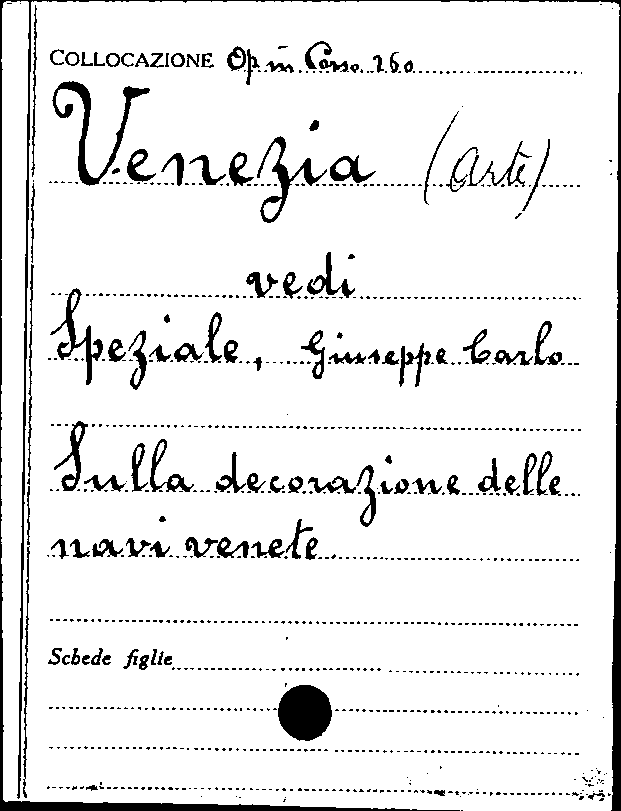 COLLOCAZIONE Op in Corso 260
Venezia (arte)
vedi
Speziale, Giuseppe Carlo
Sulla decorazione delle
navi venete.
Schede figlie